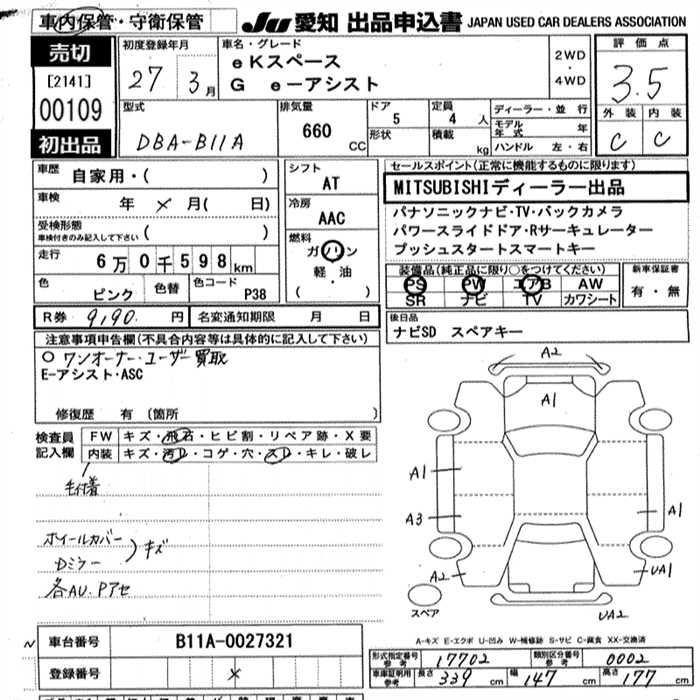 車内保管・守衛保管
JU 愛知 出品申込書 JAPAN USED CAR DEALERS ASSOCIATION
売切
[2141]
00109
初出品
初度登録年月
27 3月
車名・グレード
eKスペース
G e-アシスト
2WD
・
4WD
評価点
3.5
外装 内装
C C
型式
DBA-B11A
排気量
660 CC
ドア
5
形状
定員
4 人
積載
kg
ディーラー・並行
モデル年式 年
ハンドル 左・右
車歴
自家用・( )
車検
年 × 月( 日)
受検形態
車検付きのみ記入して下さい ( )
走行
6万0千598km
色
ピンク
色替
色コード
P38
シフト
AT
冷房
AAC
燃料
ガソリン
軽・油
( )
セールスポイント(正常に機能するものに限ります)
MITSUBISHIディーラー出品
パナソニックナビ・TV・バックカメラ
パワースライドドア・Rサーキュレーター
プッシュスタートスマートキー
装備品(純正品に限り○をつけてください)
PS PW エアB AW
SR ナビ TV カワシート
新車保証書
有・無
R券 9,190 円
名変通知期限 月 日
後日品
ナビSD スペアキー
注意事項申告欄(不具合内容等は具体的に記入して下さい)
○ワンオーナー・ユーザー買取
E-アシスト・ASC
修復歴 有 (箇所 )
検査員
記入欄
FW キズ・飛石・ヒビ割・リペア跡・X要
内装 キズ・汚れ・コゲ・穴・スレ・キレ・破レ
毛付着
ホイールカバー
Dミラー
) キズ
各AU.Pアセ
A2
A1
A1
A3
A1
A2
UA1
UA2
スペア
A-キズ E-エクボ U-凹み W-補修跡 S-サビ C-腐食 XX-交換済
車台番号 B11A-0027321
登録番号 ×
形式指定番号
参考
17702
類別区分番号
参考
0002
車庫証明用
参考
長さ 339 cm 幅 147 cm 高さ 177 cm